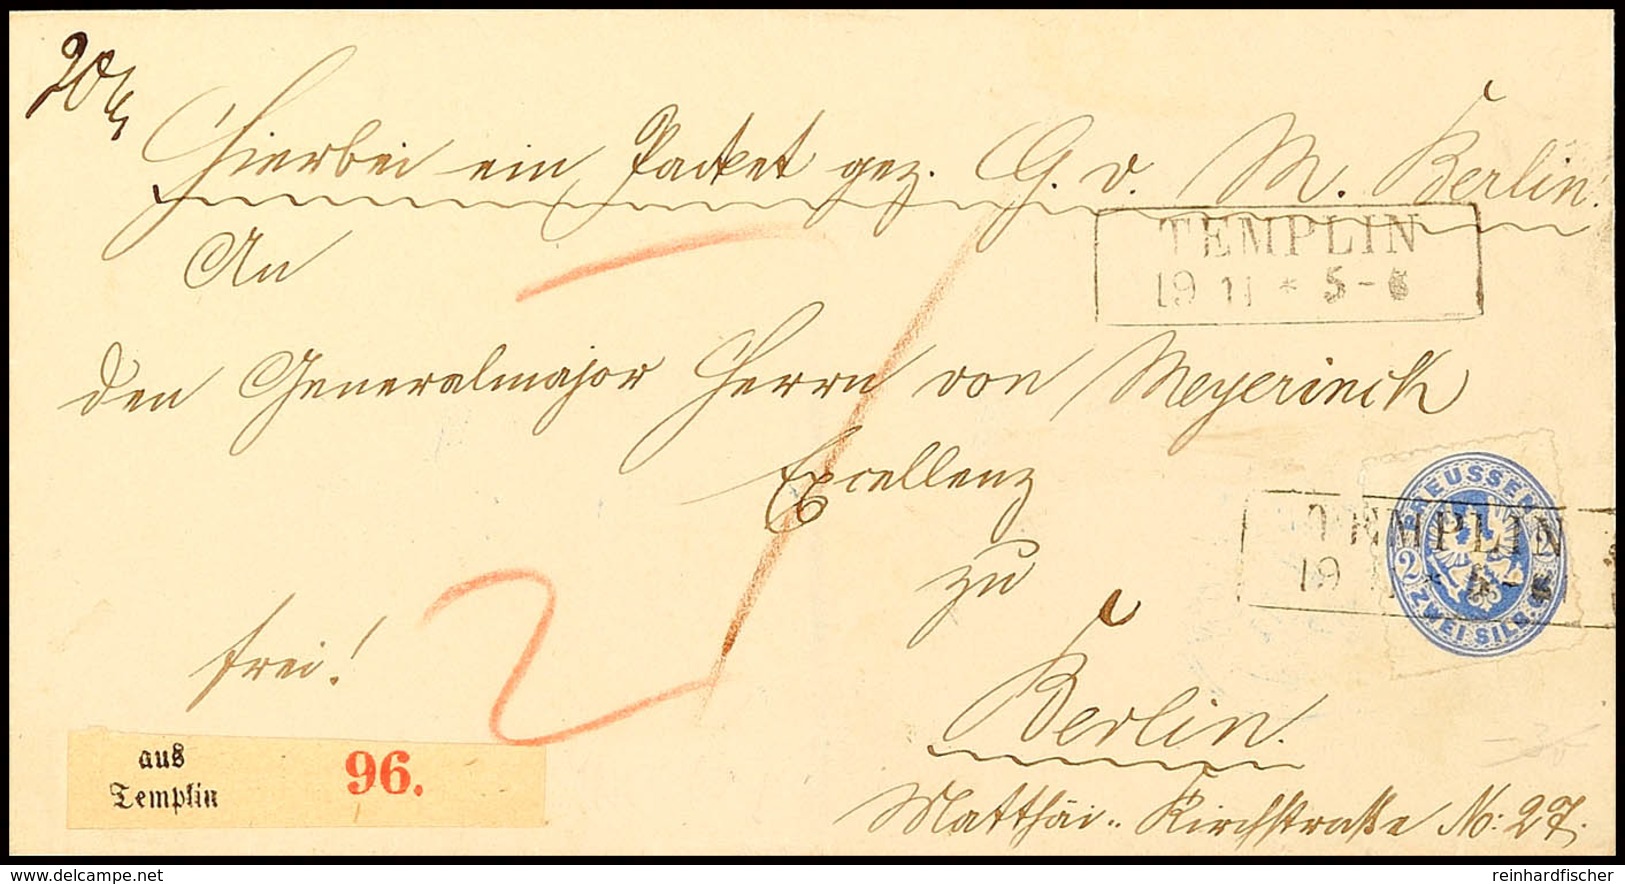 Hierbei ein Packet gez. G. v. M. Berlin.
TEMPLIN
19 11 * 5-6
An
den Generalmajor Herrn von Meyerinck
Excellenz
PREUSSEN
2 2
ZWEI SILB. GR.
TEMPLIN
19 11 *
zu
frei!
2
Berlin.
aus
Templin
96.
Matthäi-Kirchstraße No: 27.
delcampe.net
reinhardfischer